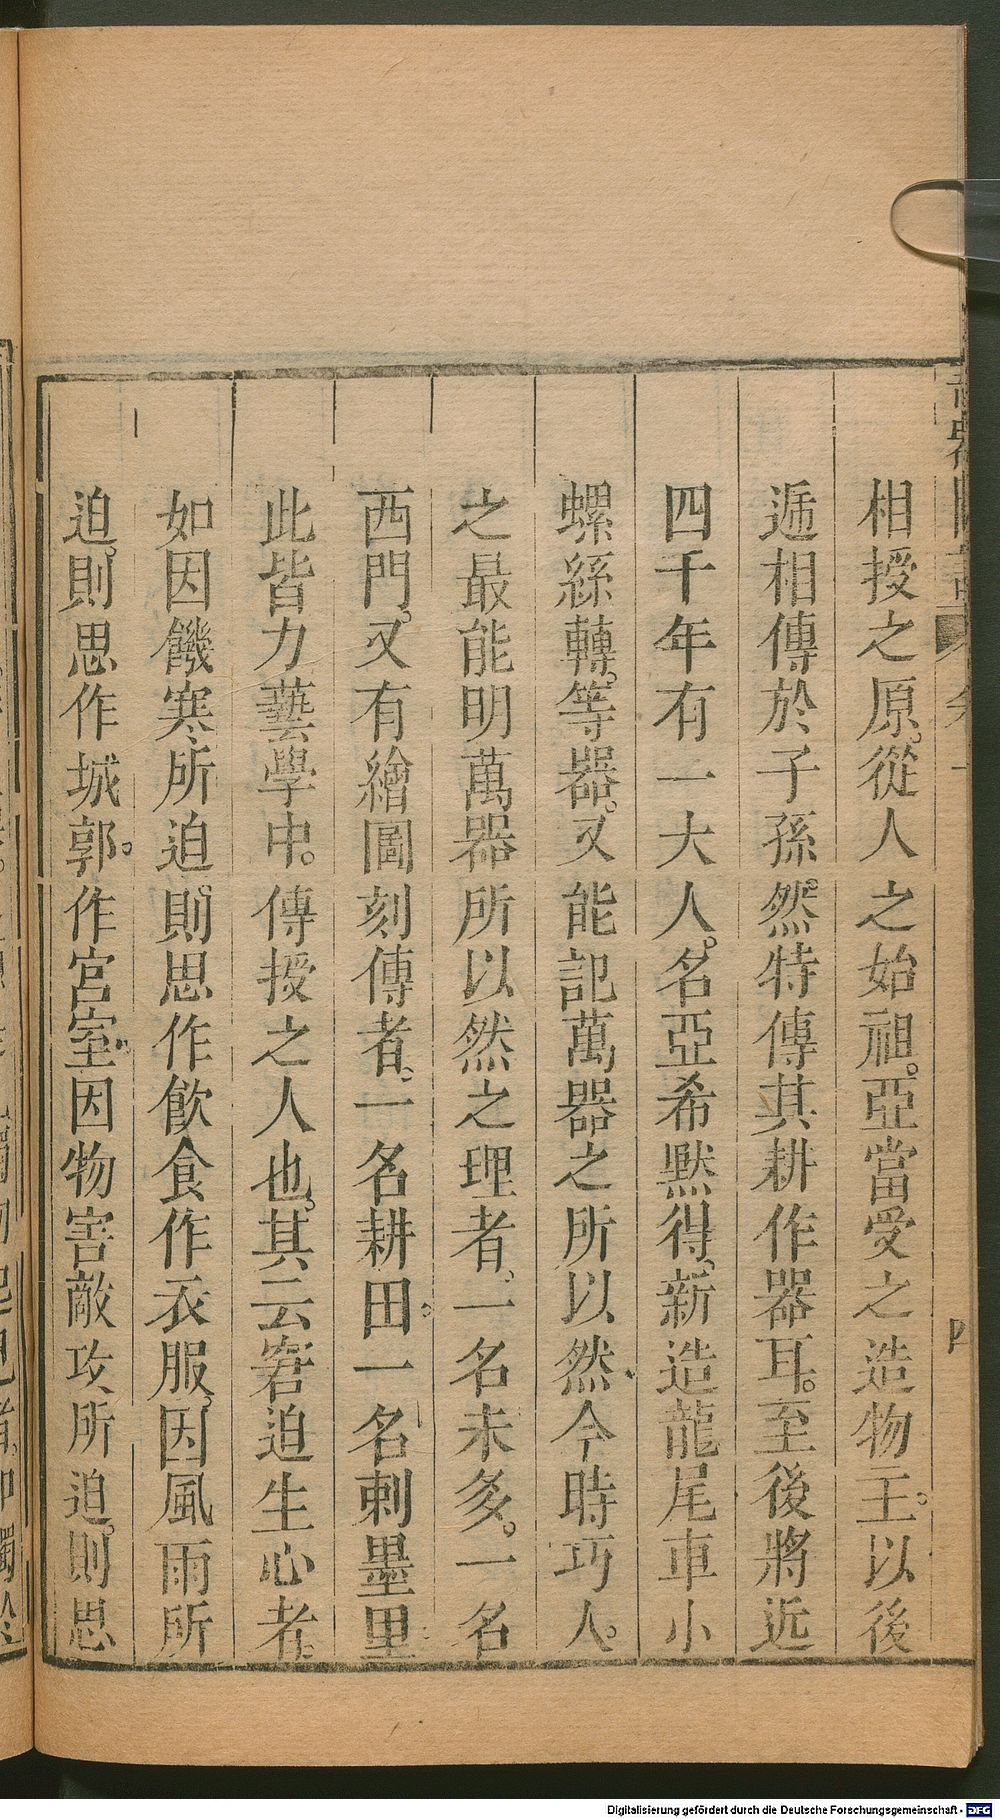 相授之原。從人之始祖。亞當受之造物王。以後
遞相傳於子孫。然特傳其耕作器耳。至後將近
四千年有一大人。名亞希黙得。新造龍尾車小
螺絲轉。等器。又能記萬器之所以然今時巧人。
之最能明萬器所以然之理者、一名未多。一名
西門。又有繪圖刻傳者、一名耕田。一名剌墨里
此皆力藝學中。傳授之人也。其云窘迫生心者。
如因饑寒所迫。則思作飲食作衣服。因風雨所
迫。則思作城郭。作宮室。因物害敵攻、所迫。則思
Digitalisierung gefördert durch die Deutsche Forschungsgemeinschaft - DFG